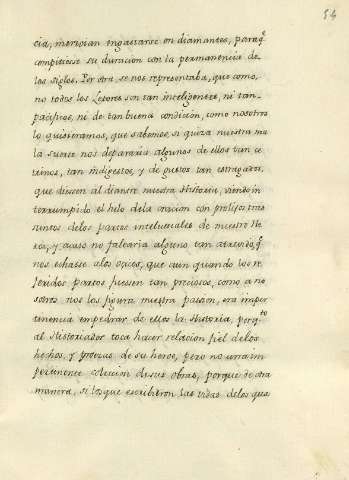 54
cia, merecian engastarse en diamantes, paraq.e
compitiesse su duracion con la permanencia de
los siglos. Por otra, se nos representaba, que como,
no todos los Letores son tan inteligentes, ni tan
pacificos, ni de tan buena condición, como nosotros
lo quisieramos, que sabemos, si quiza nuestra ma
la suerte nos depararà algunos de ellos tan ce
trinos, tan indigestos, y de gustos tan estragados,
que diessen al diantre nuestra Historia, viendo in
terrumpido el hilo dela oracion con prolijos tras
suntos delos partos intelectuales de nuestro He
roe, y acaso no faltaria alguno tan atrevido, q.e
nos echasse alos ocicos, que aun quando los re
feridos partos fuessen tan preciosos, como a no
sotros nos los figura nuestra passion, era imper
tenencia empedrar de ellos la Historia, porq.to
al Historiador toca hacer relacion fiel delos
hechos, y proezas de su heroe, pero no una im
pertinente coleccion desus obras, porque de otra
manera, si los que escribieron las vidas delos qua